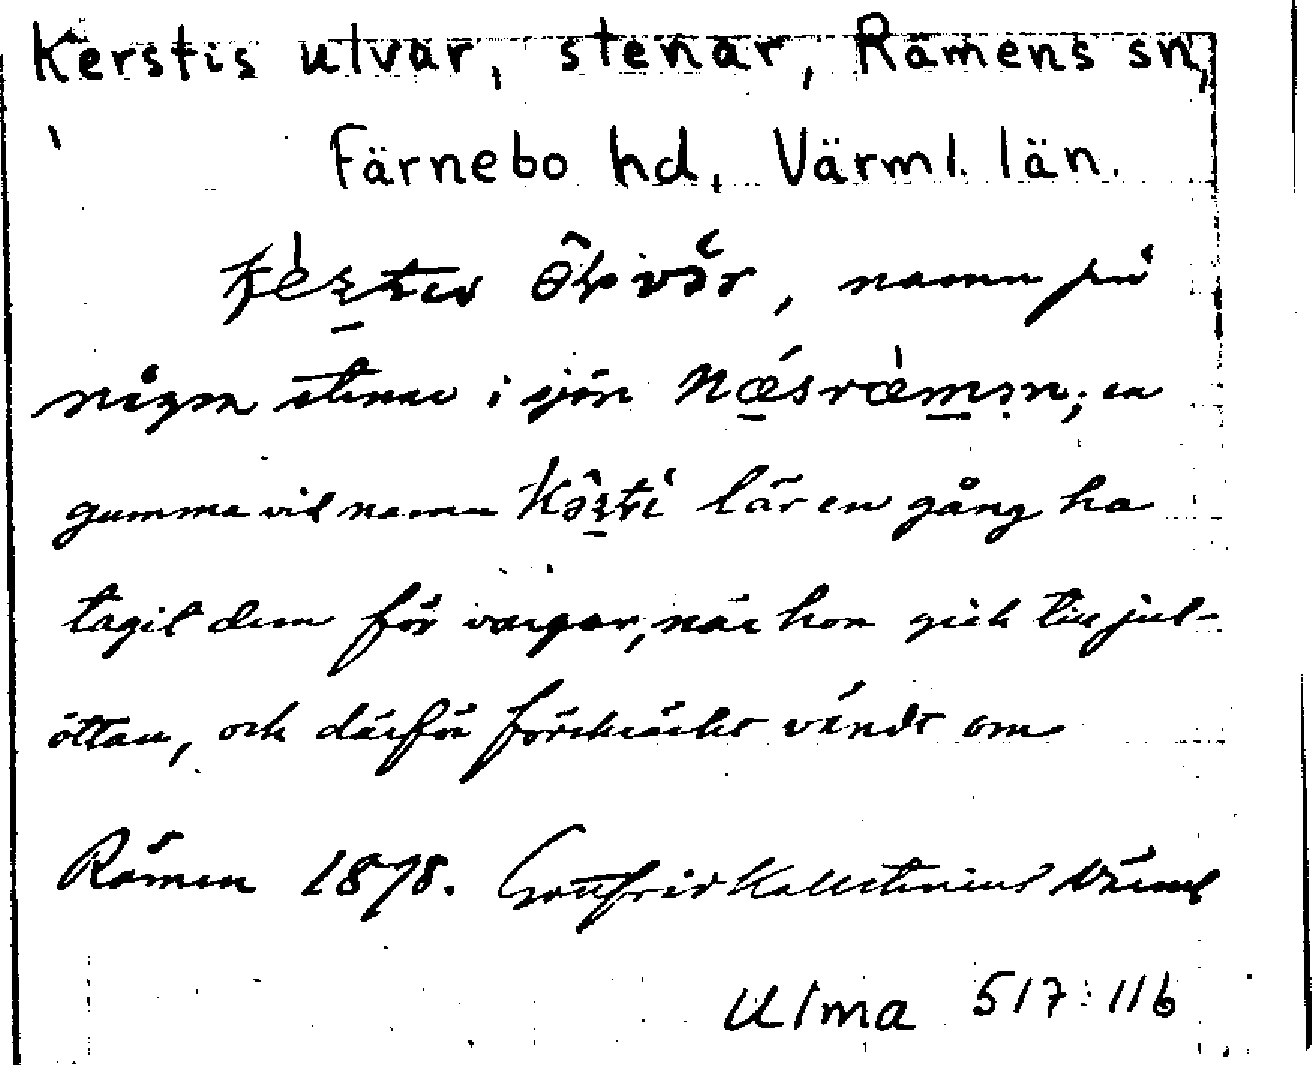 Kerstis ulvar, stenar, Rämens sn,
Färnebo hd, Värml. län.
namn på
några stenar i sjön Næsræmɩn; en
gumma vid namn Kǝsti lär en gång ha
tagit dem för vargar, när hon gick till jul-
ottan, och därför förskräckt vändt om
Rämen 1898. Gottfrid Kallstenius Värml
Ulma 517:116